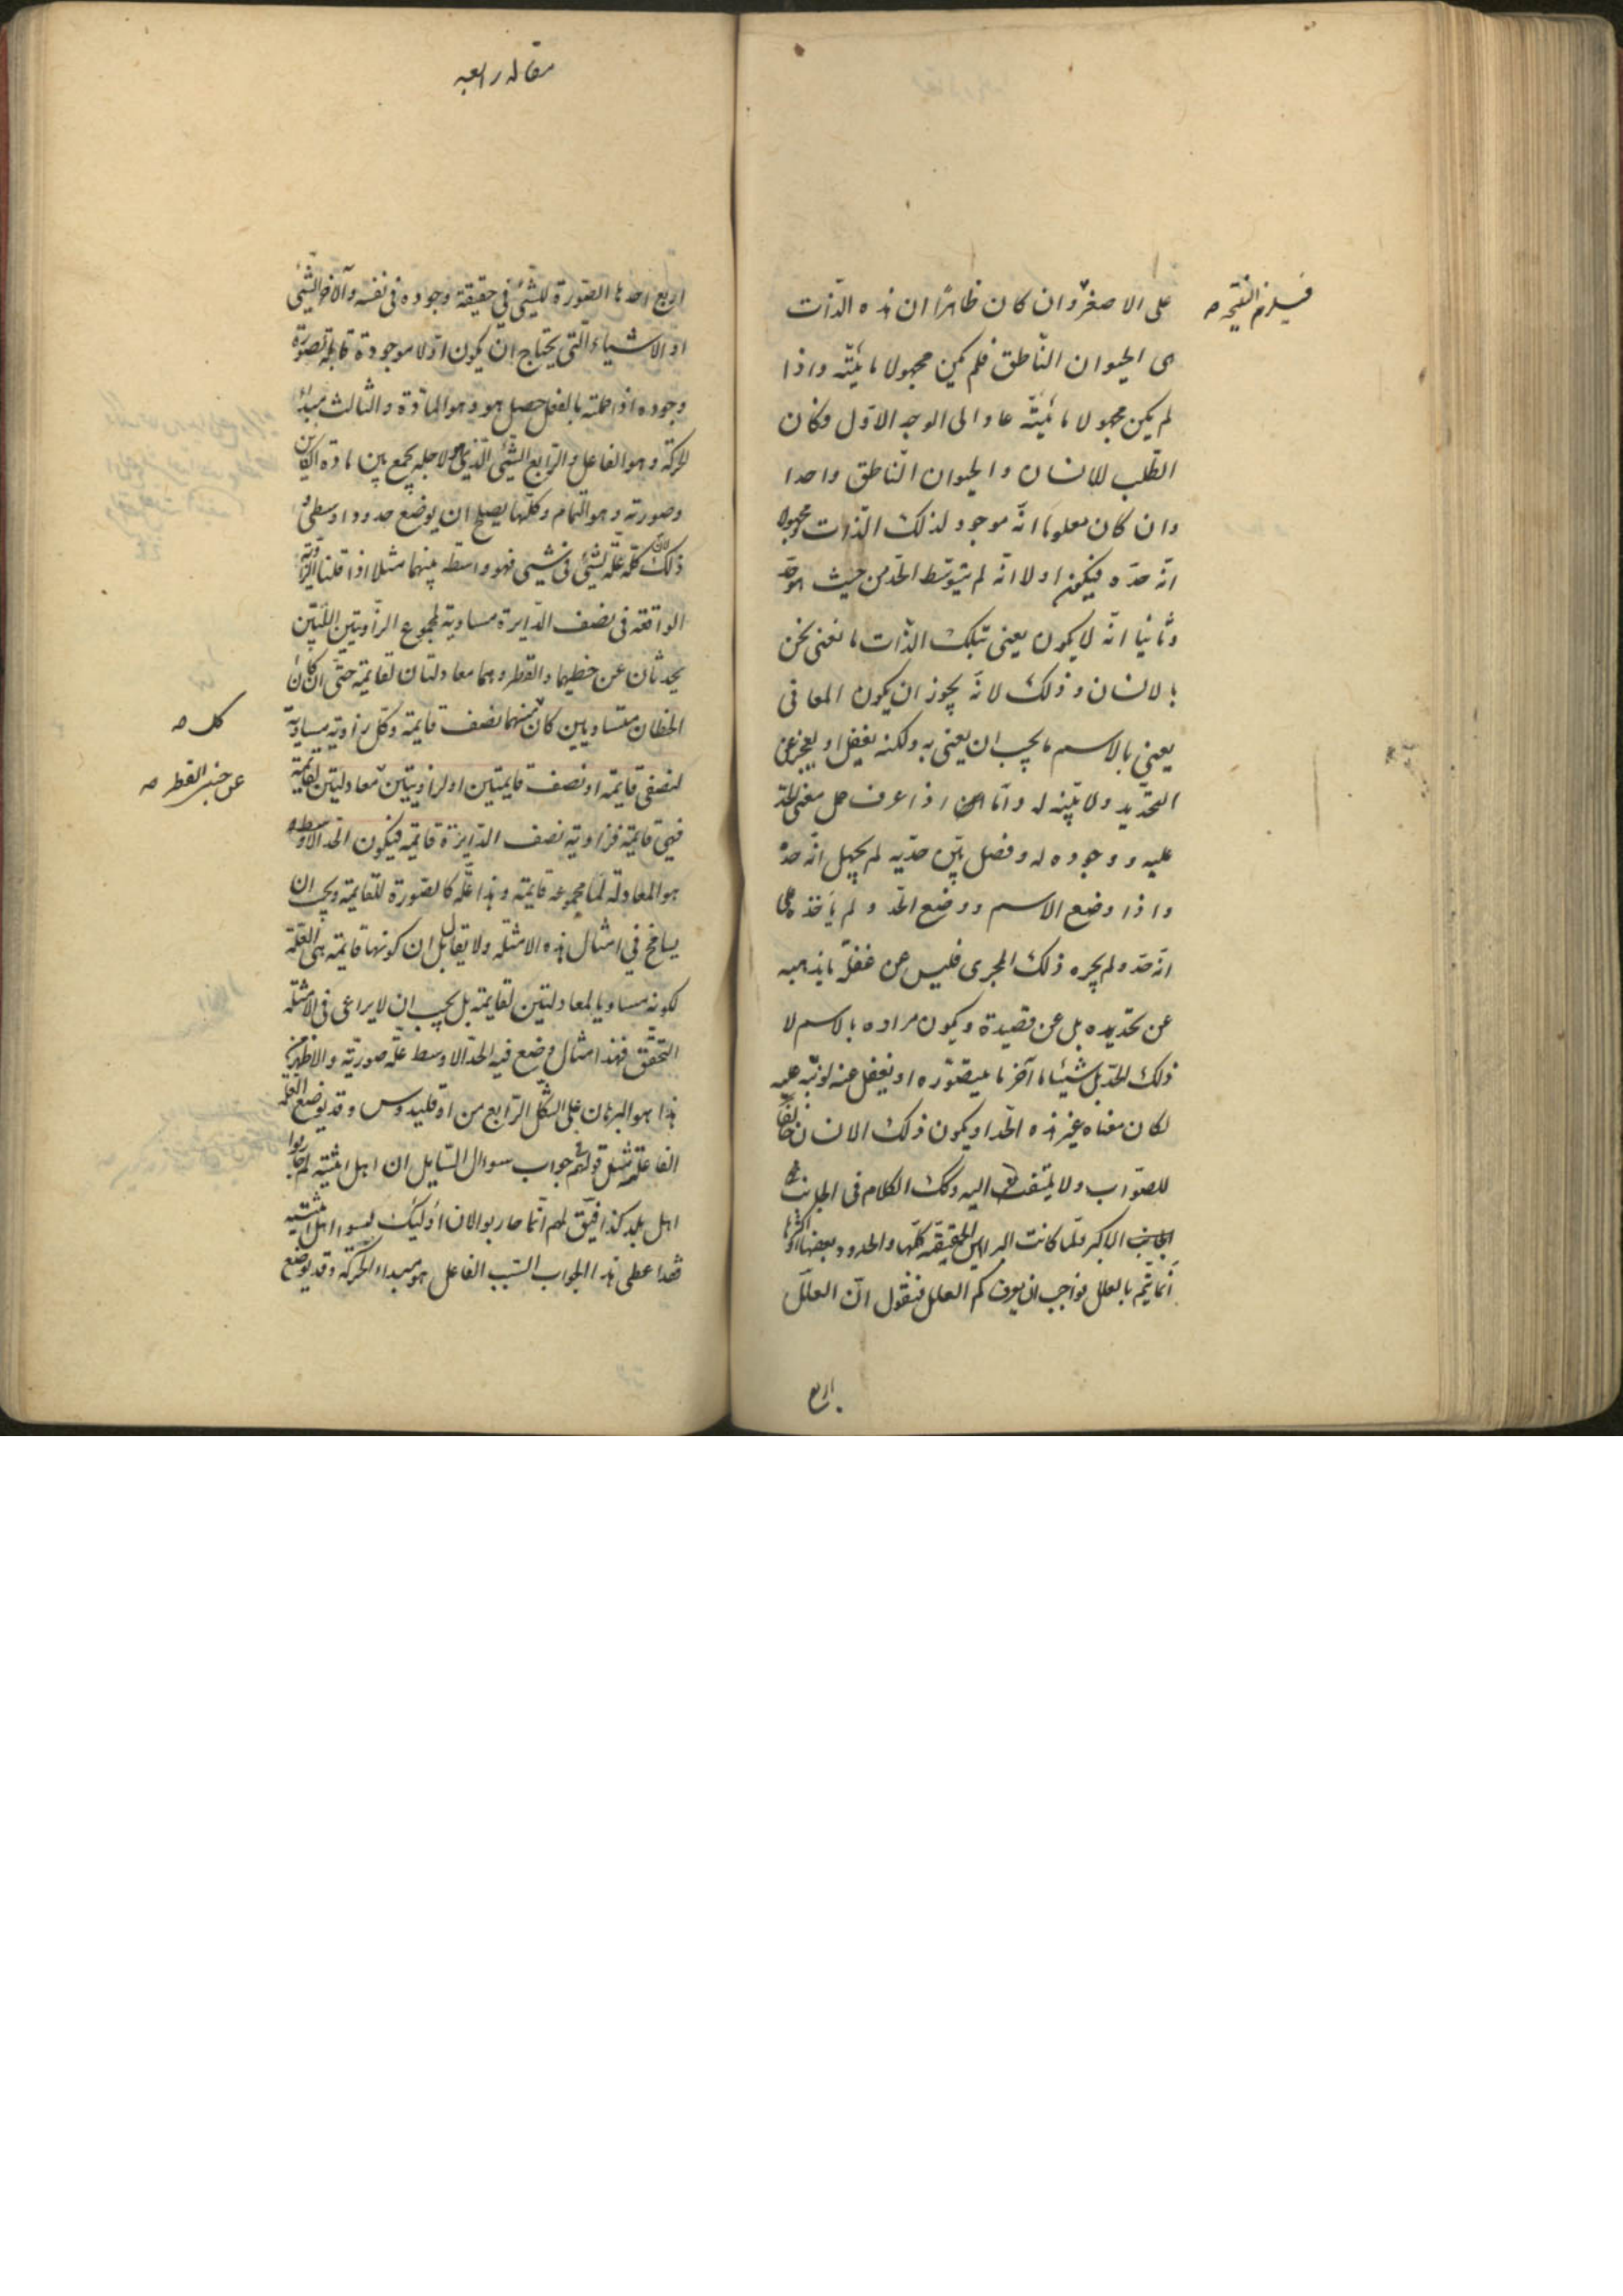 فيلزم النتيجة صح
على الاصغر وان كان ظاهرًا ان هذه الذّات
هى الحيوان النّاطق فلم يكن مجهولا مائيّته واذا
لم يكن مجهولا مائيّته عاد الى الوجه الاوّل وكان
الطّلب للانسان والحيوان النّاطق واحدا
وان كان معلومًا انّه موجود لذلك الذّات ومجهولا
انّه حدّه فيكون اولا انّه لم يتوسّط الحد من حيث هو حد
وثانيا انّه لا يكون يعنى بتلك الذّات ما نعنى نحن
بالانسان وذلك لانّه يجوز ان يكون المعانى
يعنى بالاسم ما يجب ان يعنى به ولكنه يغفل او يعجز عن
التحديد ولا يتبيّنه له وامّا اذا عرف حمل معنى الحدّ
عليه ووجوده له وفصل بين حدّيه لم يجهل انّه حدّ
واذا وضع الاسم ووضع الحدّ ولم ياخذ على
انّه حدّ ولم يجره ذلك المجرى فليس عن غفلة ما يذهب
عن تحديده بل عن قصيدة ويكون مراده بالاسم لا
ذلك الحدّ بل شيئا ما آخر ما يتصوّره او يغفل عنه لو نبّه عليه
لكان معناه غير هذه الحدّ او يكون ذلك الانسان مخالفا
للصّواب ولا يلتفت اليه وكك الكلام فى الجانب
الجانب الاكبر ولمّا كانت البراهين الحقيقيّة كلّها والحدود بعضها او اكثرها
انّما يتمّ بالعلل فواجب ان يعرف كم العلل فنقول انّ العلل
اربع
مقاله رابعه
اربع احدها الصّورة للشّئ فى حقيقة وجوده فى نفسه والآخر الشّئ
او الاشياء الّتى يحتاج ان يكون اوّلا موجودة قابلة لصورة
وجوده اذا حملته بالفعل حصل هو وهو المادّة والثّالث مبدأ
الحركة وهو الفاعل والرّابع الشّئ الّذى لاجله يجمع بين مادة الكاين
وصورته وهو التمام وكلّها يصلح ان يوضع حدودا وسطى و
ذلك لانّ كلّه علّة لشئ فى شئ فهو واسطه بينهما مثلا اذا قلنا الزّاوية
الواقعة فى نصف الدّايرة مساوية لمجموع الزّاويتين اللّتين
يحدثان عن خطيهما والقطر وهما معادلتان لقايمة حتى ان كان
الخطان متساويين كان منهما نصف قايمة وكلّ زاوية مساوية
كل صح
لنصفى قايمة او نصف قايمتين او لزاويتين معادلتين لقايمة
عن جنبى القطر صح
فهى قايمة فزاوية نصف الدّايرة قايمة فيكون الحدّ الاوسط
هو المعادلة لما مجموعه قايمة وهذا علّة كالصّورة للقايمة ويجب ان
يسامح فى امثال هذه الامثلة ولا يقال بل ان كونها قايمة هى العلّة
لكونه مساويا لمعادلتين لقايمة بل يجب ان لا يراعى فى الامثلة
التحقّق فهذا مثال وضع فيه الحدّ الاوسط علّة صوريّة والاظهر من
هذا هو البرهان على الشّكل الرّابع من اوقليدوس وقد يوضع العلّة
الفاعلة مثل قولهم فى جواب سوال السّايل ان اهل اثنية لم حاربوا
اهل بلد كذا فيق لهم انّما حاربوا لان اولئك بيتوا اهل اثنية
فقد اعطى هذا الجواب السّبب الفاعل هو مبداء الحركة وقد يوضع